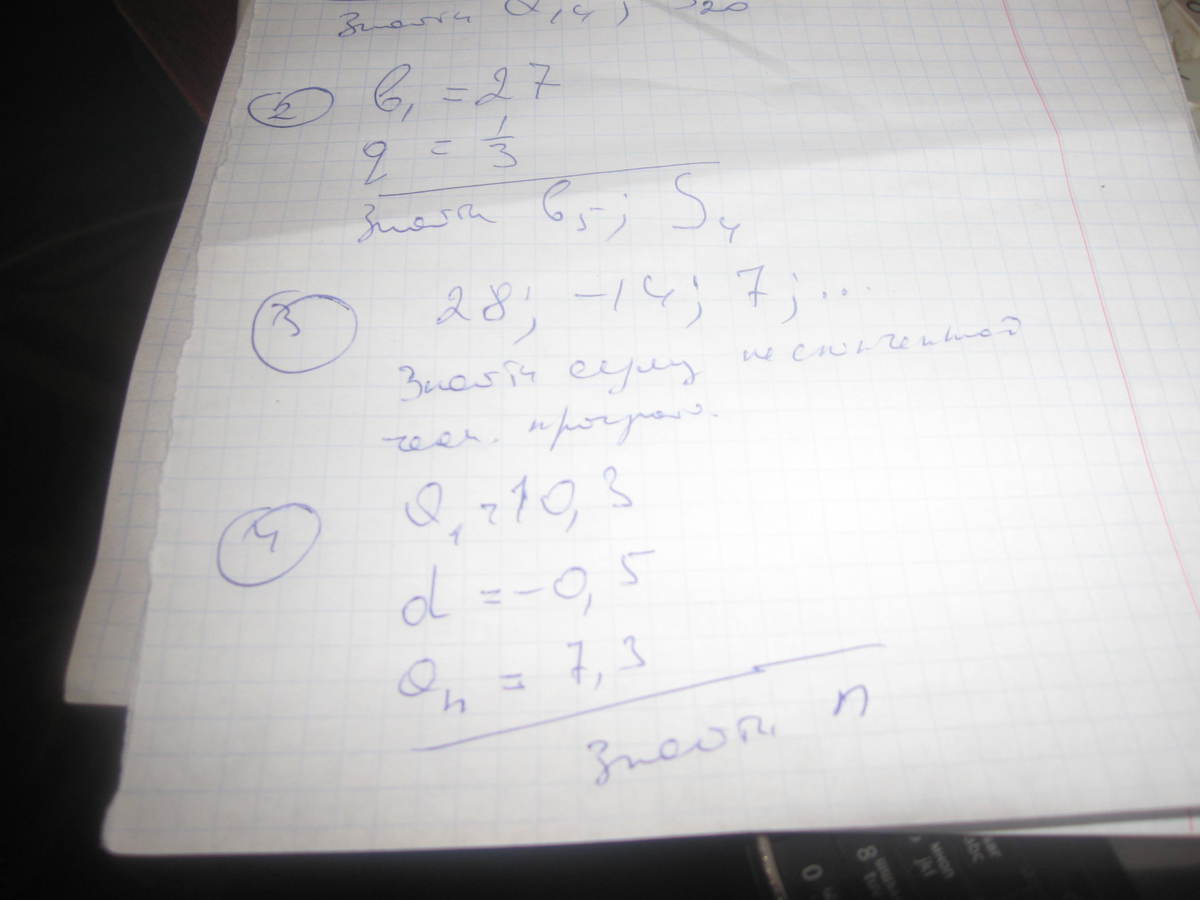 Знайти a₁₄; S₂₀
② b₁ = 27
q = 1/3
Знайти b₅; S₄
③ 28; -14; 7; ...
Знайти суму нескінченної
геом. прогрес.
④ a₁ = 10,3
d = -0,5
aₙ = 7,3
Знайти n
0
8
jkl
abc